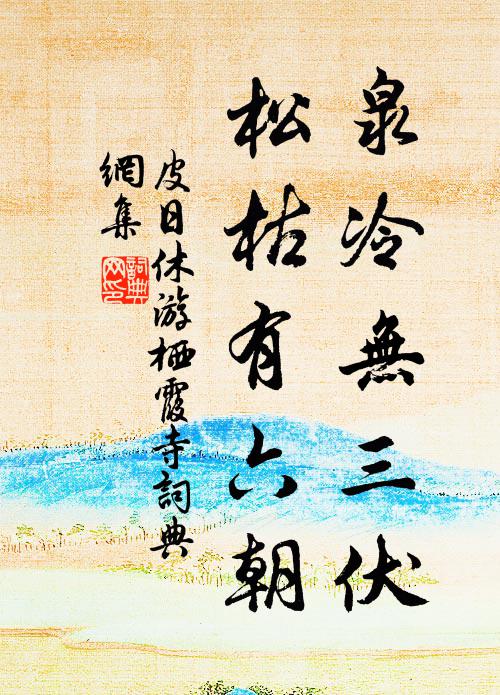 泉冷無三伏
松枯有六朝
皮日休游栖霞寺詞典
網集
詞典
网印